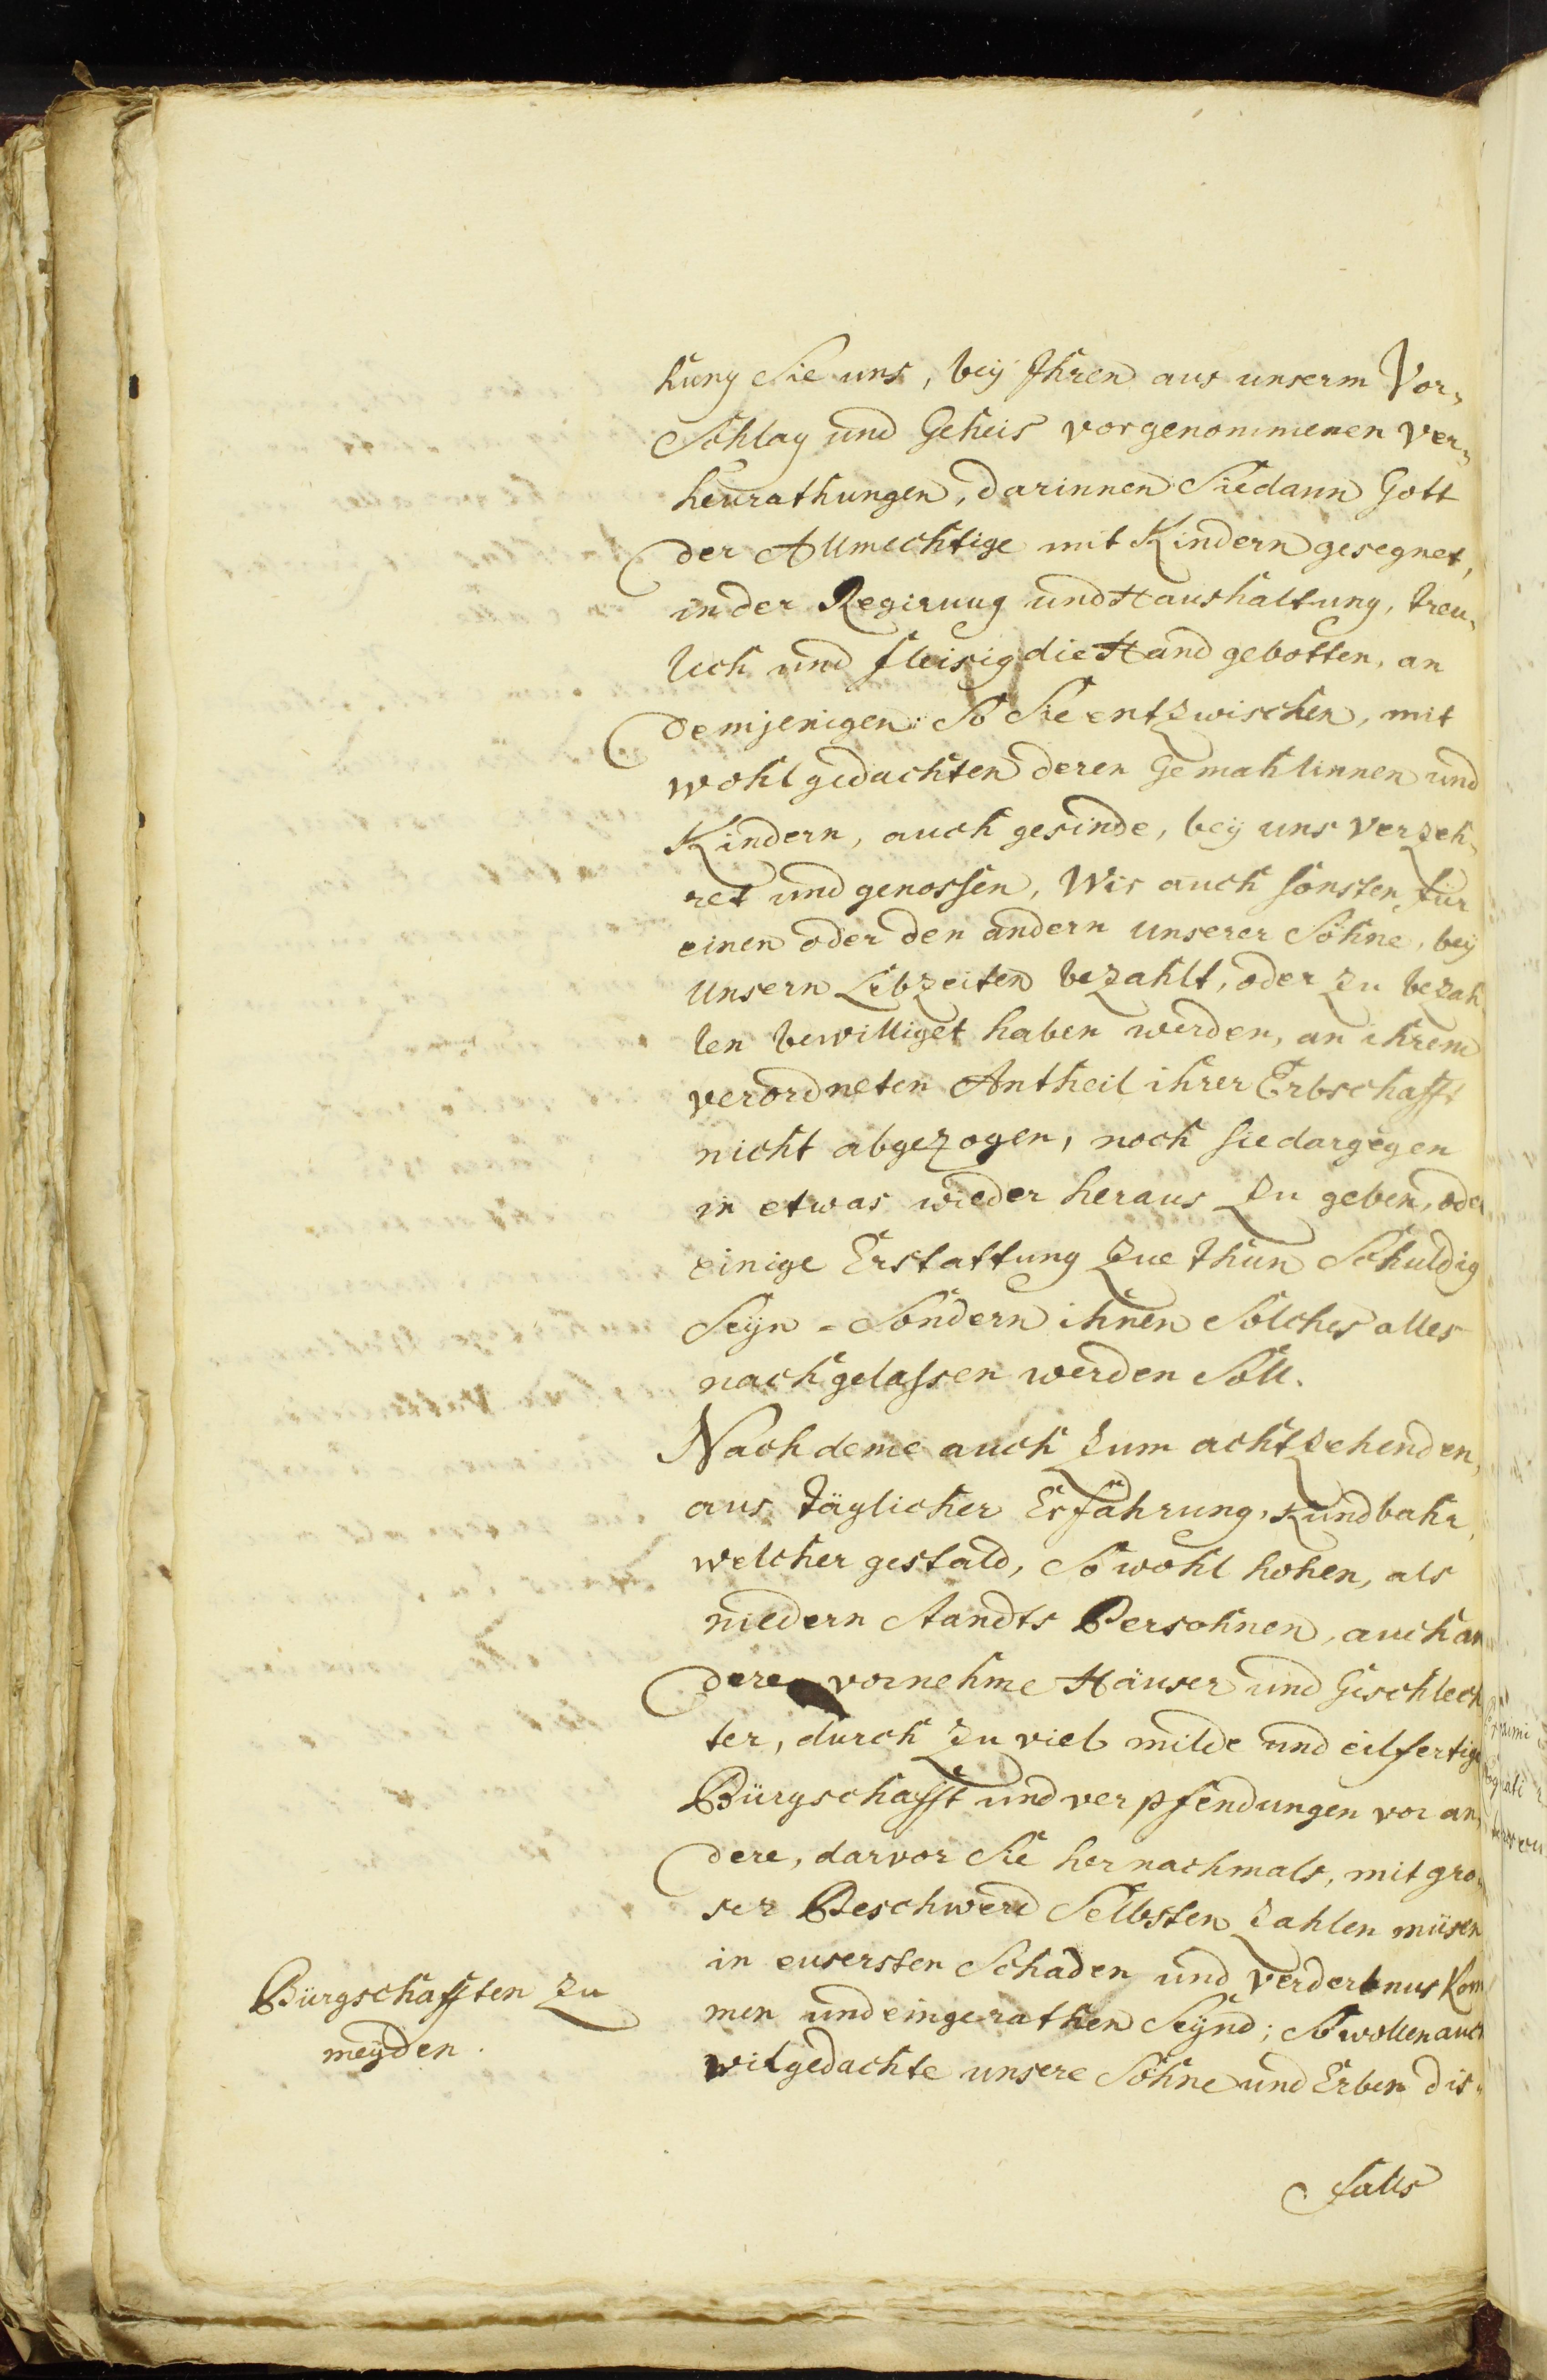 hung Sie uns, beÿ Ihren aus unserm Vor„
Schlag und Geheis vorgenommenen Ver„
heurathungen, darinnen Sie dann Gott
der Allmechtige mit Kindern gesegnet,
in der Regirung und Haushaltung, treu„
lich und fleisig die Hand gebotten, an
demjenigen: So Sie entzwischen, mit
wohlgedachten deren Gemahlinnen und
Kindern, auch gesinde, beÿ uns verzeh„
ret und genossen, Wir auch sonsten, für
einen oder den andern unserer Söhne, beÿ
Unsern Lebzeiten bezahlt, oder zu bezah
len bewilliget haben werden, an ihrem
verordneten Antheil ihrer Erbschafft
nicht abgezogen, noch sie dargegen
in etwas wieder heraus zu geben, oder
einige Erstattung zue thun Schuldig
Seÿn - Sondern ihnen Solches alles
nachgelassen werden Soll.
Nachdeme auch zum achtzehenden,
aus täglicher Erfahrung, kundbahr,
welcher gestald, So wohl hohen, als
niedern Standts Persohnen, auch an
dere vornehme Häuser und Geschlech
ter, durch zu viel milde und eilfertige
Bürgschafft und verpfendungen vor an„
dere, darvor Sie hernachmals, mit gro„
ser Beschwerd Selbsten zahlen müsen
in eusersten Schaden und Verderbnus Kom
men und eingerathen Seÿnd; So wollen auch
wilgedachte unsere Söhne und Erben dis„
falls
Bürgschafften zu
meÿden.